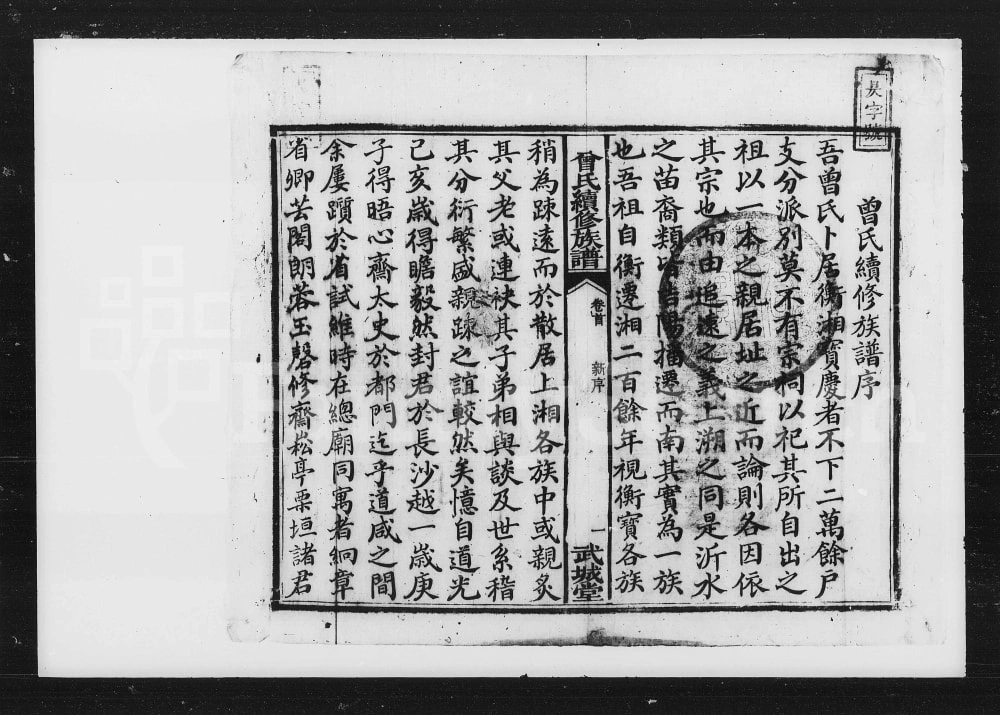 吳字號
曾氏續修族譜序
吾曾氏卜居衡湘寶慶者不下二萬餘戶
支分派別莫不有宗祠以祀其所自出之
祖以一本之親居址之近而論則各因依
其宗也而由追遠之義上溯之同是沂水
之苗裔類皆吉陽播遷而南其實為一族
也吾祖自衡遷湘二百餘年視衡寶各族
曾氏續修族譜
卷首
新序
一
武城堂
稍為踈遠而於散居上湘各族中或親炙
其父老或連袂其子弟相與談及世系稽
其分衍繁盛親踈之誼較然矣憶自道光
己亥歲得瞻毅然封君於長沙越一歲庚
子得晤心齋太史於都門迄乎道咸之間
余屢躓於省試維時在總廟同寓者絅章
省卿芸閣朗蓉玉磬修齋崧亭栗垣諸君